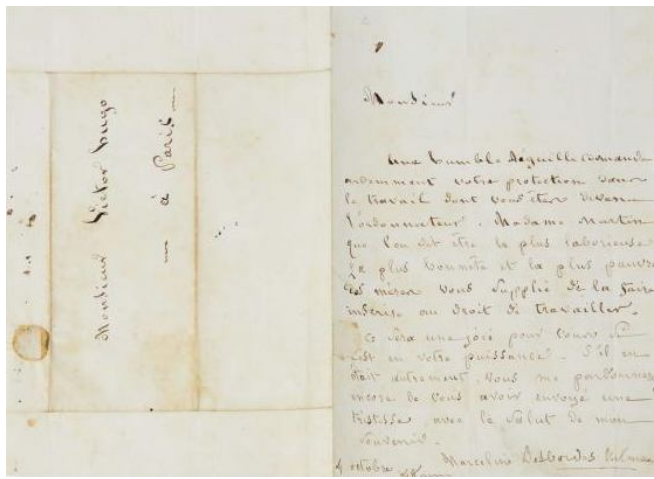 Monsieur Victor Hugo
à Paris
Monsieur
Une humble Aiguille demande
ardemment votre protection dans
le travail dont vous êtes devenu
l'ordonnateur. Madame Martin
que l'on dit être la plus laborieuse
la plus honnête et la plus pauvre
des mères vous supplie de la faire
inscrire au droit de travailler.
Ce sera une joie pour vous si
c'est en votre puissance. S'il en
était autrement, vous me pardonnerez
encore de vous avoir envoyé une
tristesse avec le salut de mon
souvenir.
Marceline Desbordes Valmore
4 octobre